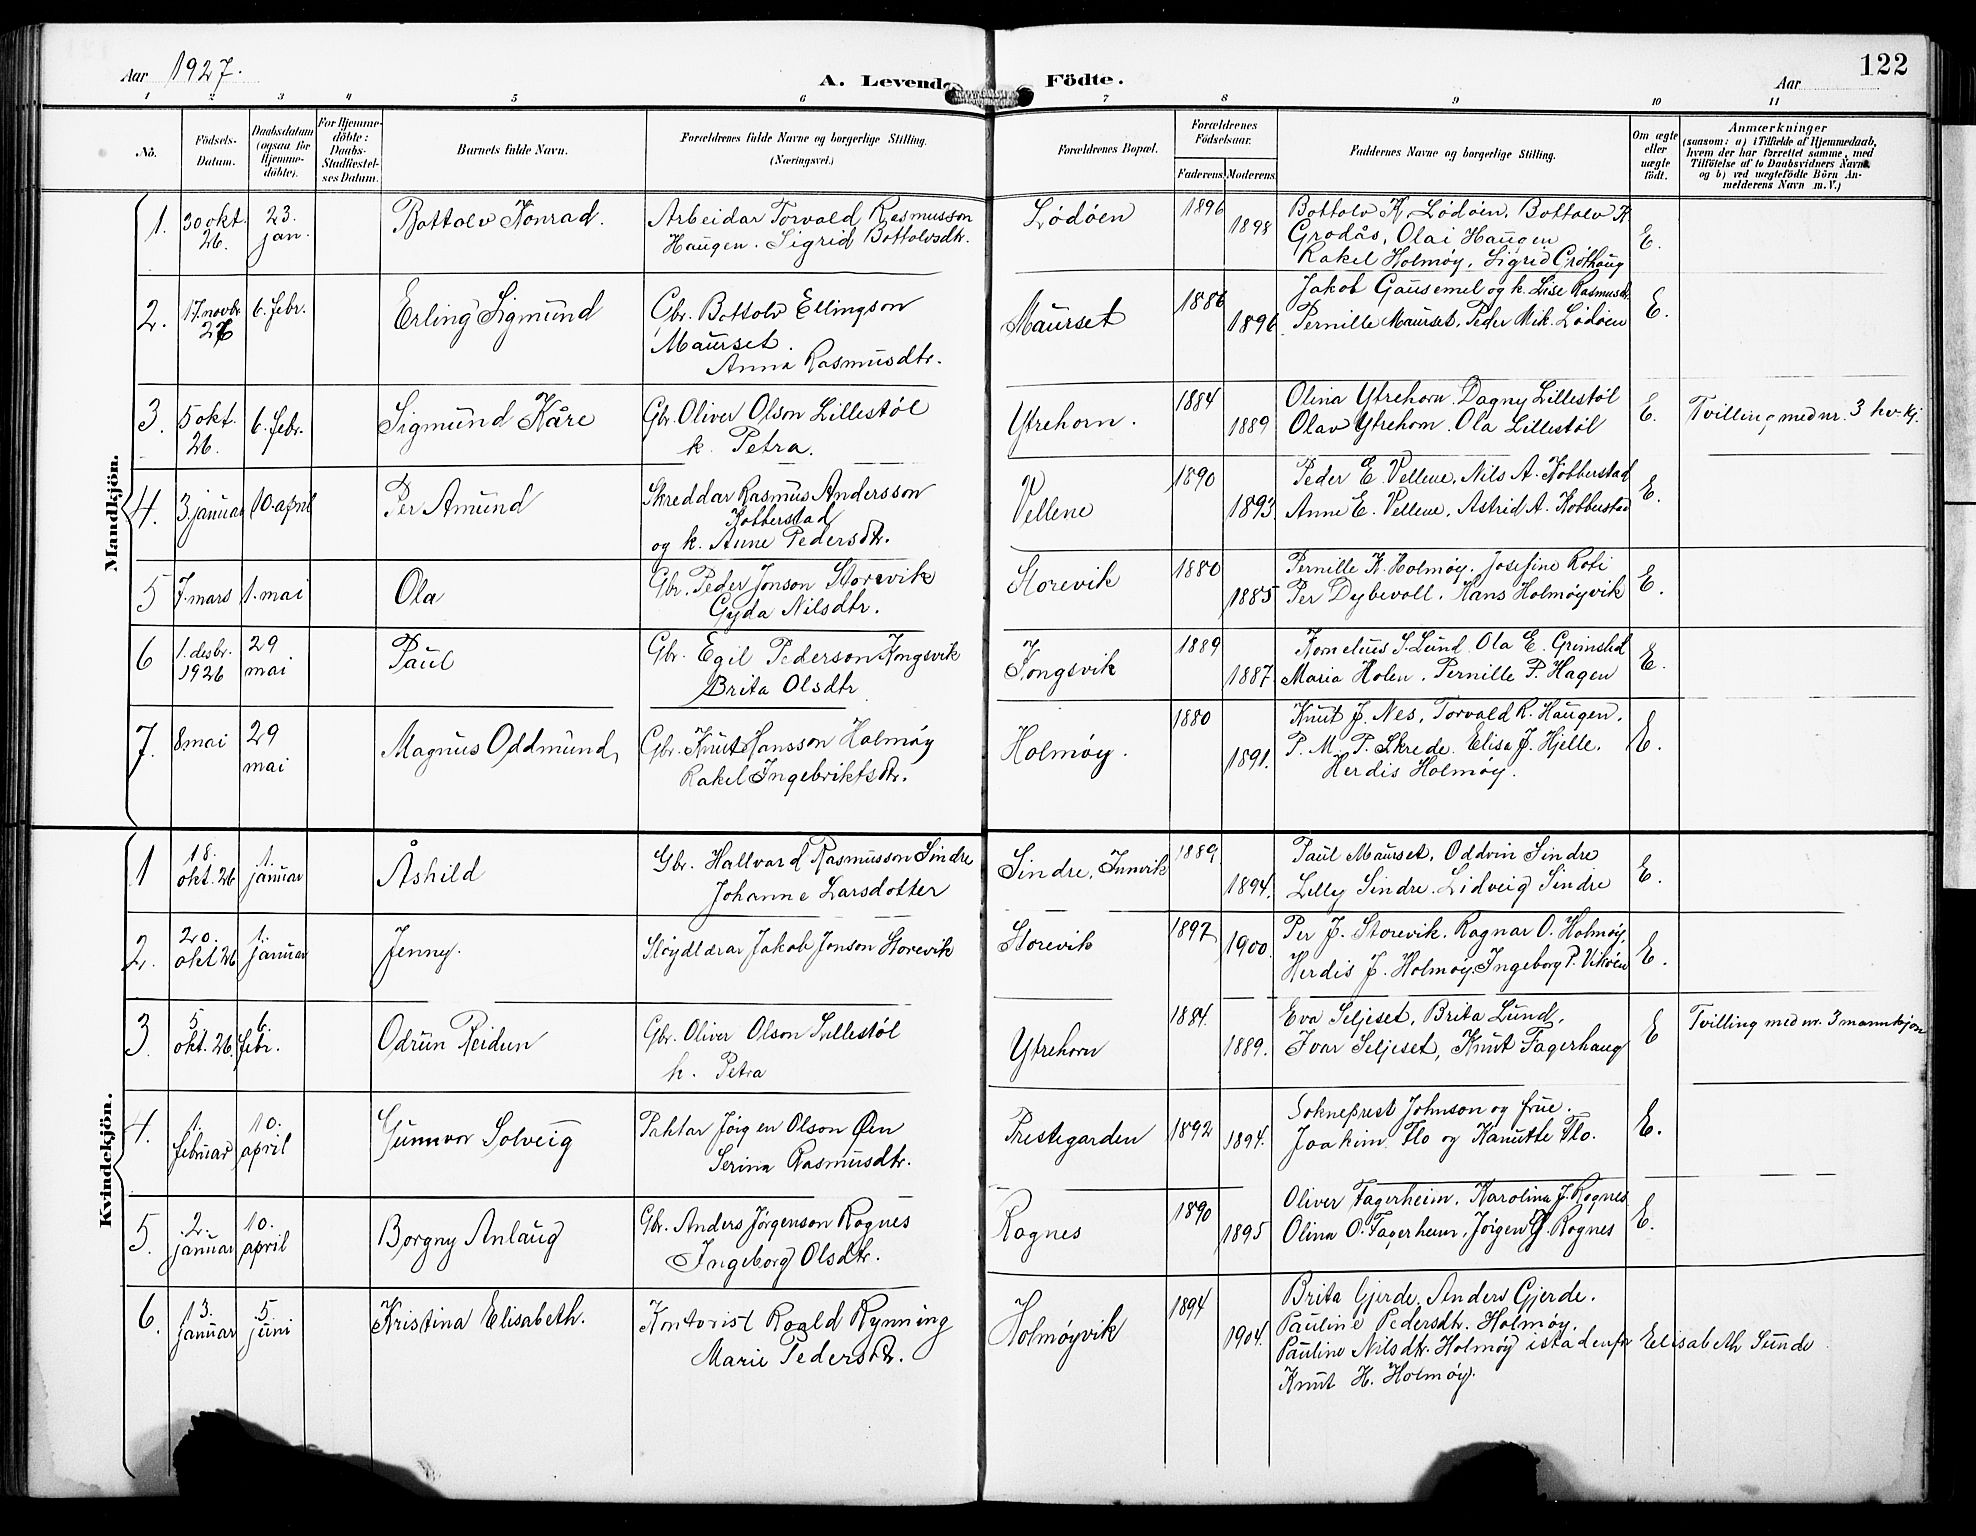 Aar 1927.
A. Levende Födte.
Aar
122
1 2 3 4 5 6 7 8 9 10 11
No.
Födsels-
Datum.
Daabsdatum
(ogsaa for
Hjemme-
döbte).
For Hjemme-
döbte:
Daabs-
Stadfæstel-
ses Datum.
Barnets fulde Navn.
Forældrenes fulde Navne og borgerlige Stilling.
(Næringsvei.)
Forældrenes Bopæl.
Forældrenes
Födselsaar.
Faderens. Moderens.
Faddernes Navne og borgerlige Stilling.
Om ægte
eller
uægte
født.
Anmærkninger
(saasom: a) i Tilfælde af Hjemmedaab,
hvem der har forrettet samme, med
Tilföielse af to Daabsvidners Navne
og b) ved uægtefödte Börn An-
melderens Navn m. V.)
Mandkjön.
1. 30 okt. 26. 23. jan. Bottolv Konrad. Arbeidar Torvald Rasmusson
Haugen. Sigrid Bottolvsdtr.
Lødøen 1896 1898 Bottolv K. Lødøen, Bottolv K.
Grodås, Olai Haugen
Rakel Holmøy, Sigrid Grøthaug
E.
2. 17. novbr. 26 6. febr. Erling Sigmund Gbr. Bottolv Ellingson
Maurset.
Anna Rasmusdtr.
Maurset 1886 1896 Jakob Gausemel og k. Lise Rasmusdtr.
Pernille Maurset, Peder Mik. Lødøen
E.
3. 5 okt. 26. 6. febr. Sigmund Kåre Gbr. Oliver Olson Lillestøl
k. Petra.
Ytrehorn. 1884 1889 Olina Ytrehorn. Dagny Lillestøl
Olav Ytrehorn. Ola Lillestøl
E. Tvilling med nr. 3 kv.kj.
4. 3. januar 10. april Per Amund Skreddar Rasmus Andersson
Kobberstad
og k. Anne Pedersdtr.
Vellene 1890 1893 Peder E. Vellene, Nils A. Kobberstad
Anne E. Vellene, Astrid A. Kobberstad
E.
5 7. mars 1. mai Ola Gbr. Peder Jonson Storevik
Gyda Nilsdtr.
Storevik 1880 1885 Pernille K. Holmøy. Josefine Roti
Per Dybevoll. Hans Holmøyvik
E.
6 1. desbr. 1926 29 mai Paul Gbr. Egil Pederson Kongsvik
Brita Olsdtr
Kongsvik 1889 1887. Kornelius S. Lund. Ola E. Grimstad
Maria Holen. Pernille P. Hagen
E.
7. 8 mai 29 mai Magnus Oddmund Gbr. Knut Hansson Holmøy
Rakel Ingebriktsdtr.
Holmøy. 1880 1891. Knut J. Nes, Torvald R. Haugen.
P. M. P. Skrede. Elisa J. Hjelle.
Herdis Holmøy.
E.
Kvindekjön.
1 18. okt. 26 1. januar Åshild Gbr. Hallvard Rasmusson Sindre
Johanne Larsdotter
Sindre, Innvik 1889 1894. Paul Maurset, Oddvin Sindre
Lilly Sindre. Lidveig Sindre
E.
2. 20. okt 26 1. januar Jenny. Sløydlærar Jakob Jonson Storevik
Storevik 1897 1900. Per J. Storevik. Ragnar O. Holmøy,
Herdis J. Holmøy. Ingeborg P. Vikøen
E.
3. 5 okt. 26 6. febr. Odrun Reidun Gbr. Oliver Olson Lillestøl
k. Petra
Ytrehorn 1884. 1889. Eva Seljeset, Brita Lund,
Ivar Seljeset, Knut Fagerhaug
E Tvilling med nr. 3 mannkjøn
4. 1. februar 10. april Gunnvor Solveig Paktar Jörgen Olson Øen
Serina Rasmusdtr.
Prestegarden 1892 1894. Sokneprest Johnson og frue.
Joakim Flo og Kanutte Flo.
E.
5. 2. januar 10. april Borgny Anlaug Gbr. Anders Jörgenson Rognes
Ingeborg Olsdtr.
Rognes 1890 1895 Oliver Fagerheim, Karolina J. Rognes
Olina O. Fagerheim, Jörgen J. Rognes
E.
6. 13. januar 5 juni Kristina Elisabeth. Kontorist Roald Rynning
Marie Pedersdtr.
Holmøyvik 1894 1904. Brita Gjerde, Anders Gjerde.
Pauline Pedersdtr. Holmøy.
Pauline Nilsdtr. Holmøy istadenfor Elisabeth Sunde
Knut H. Holmøy.